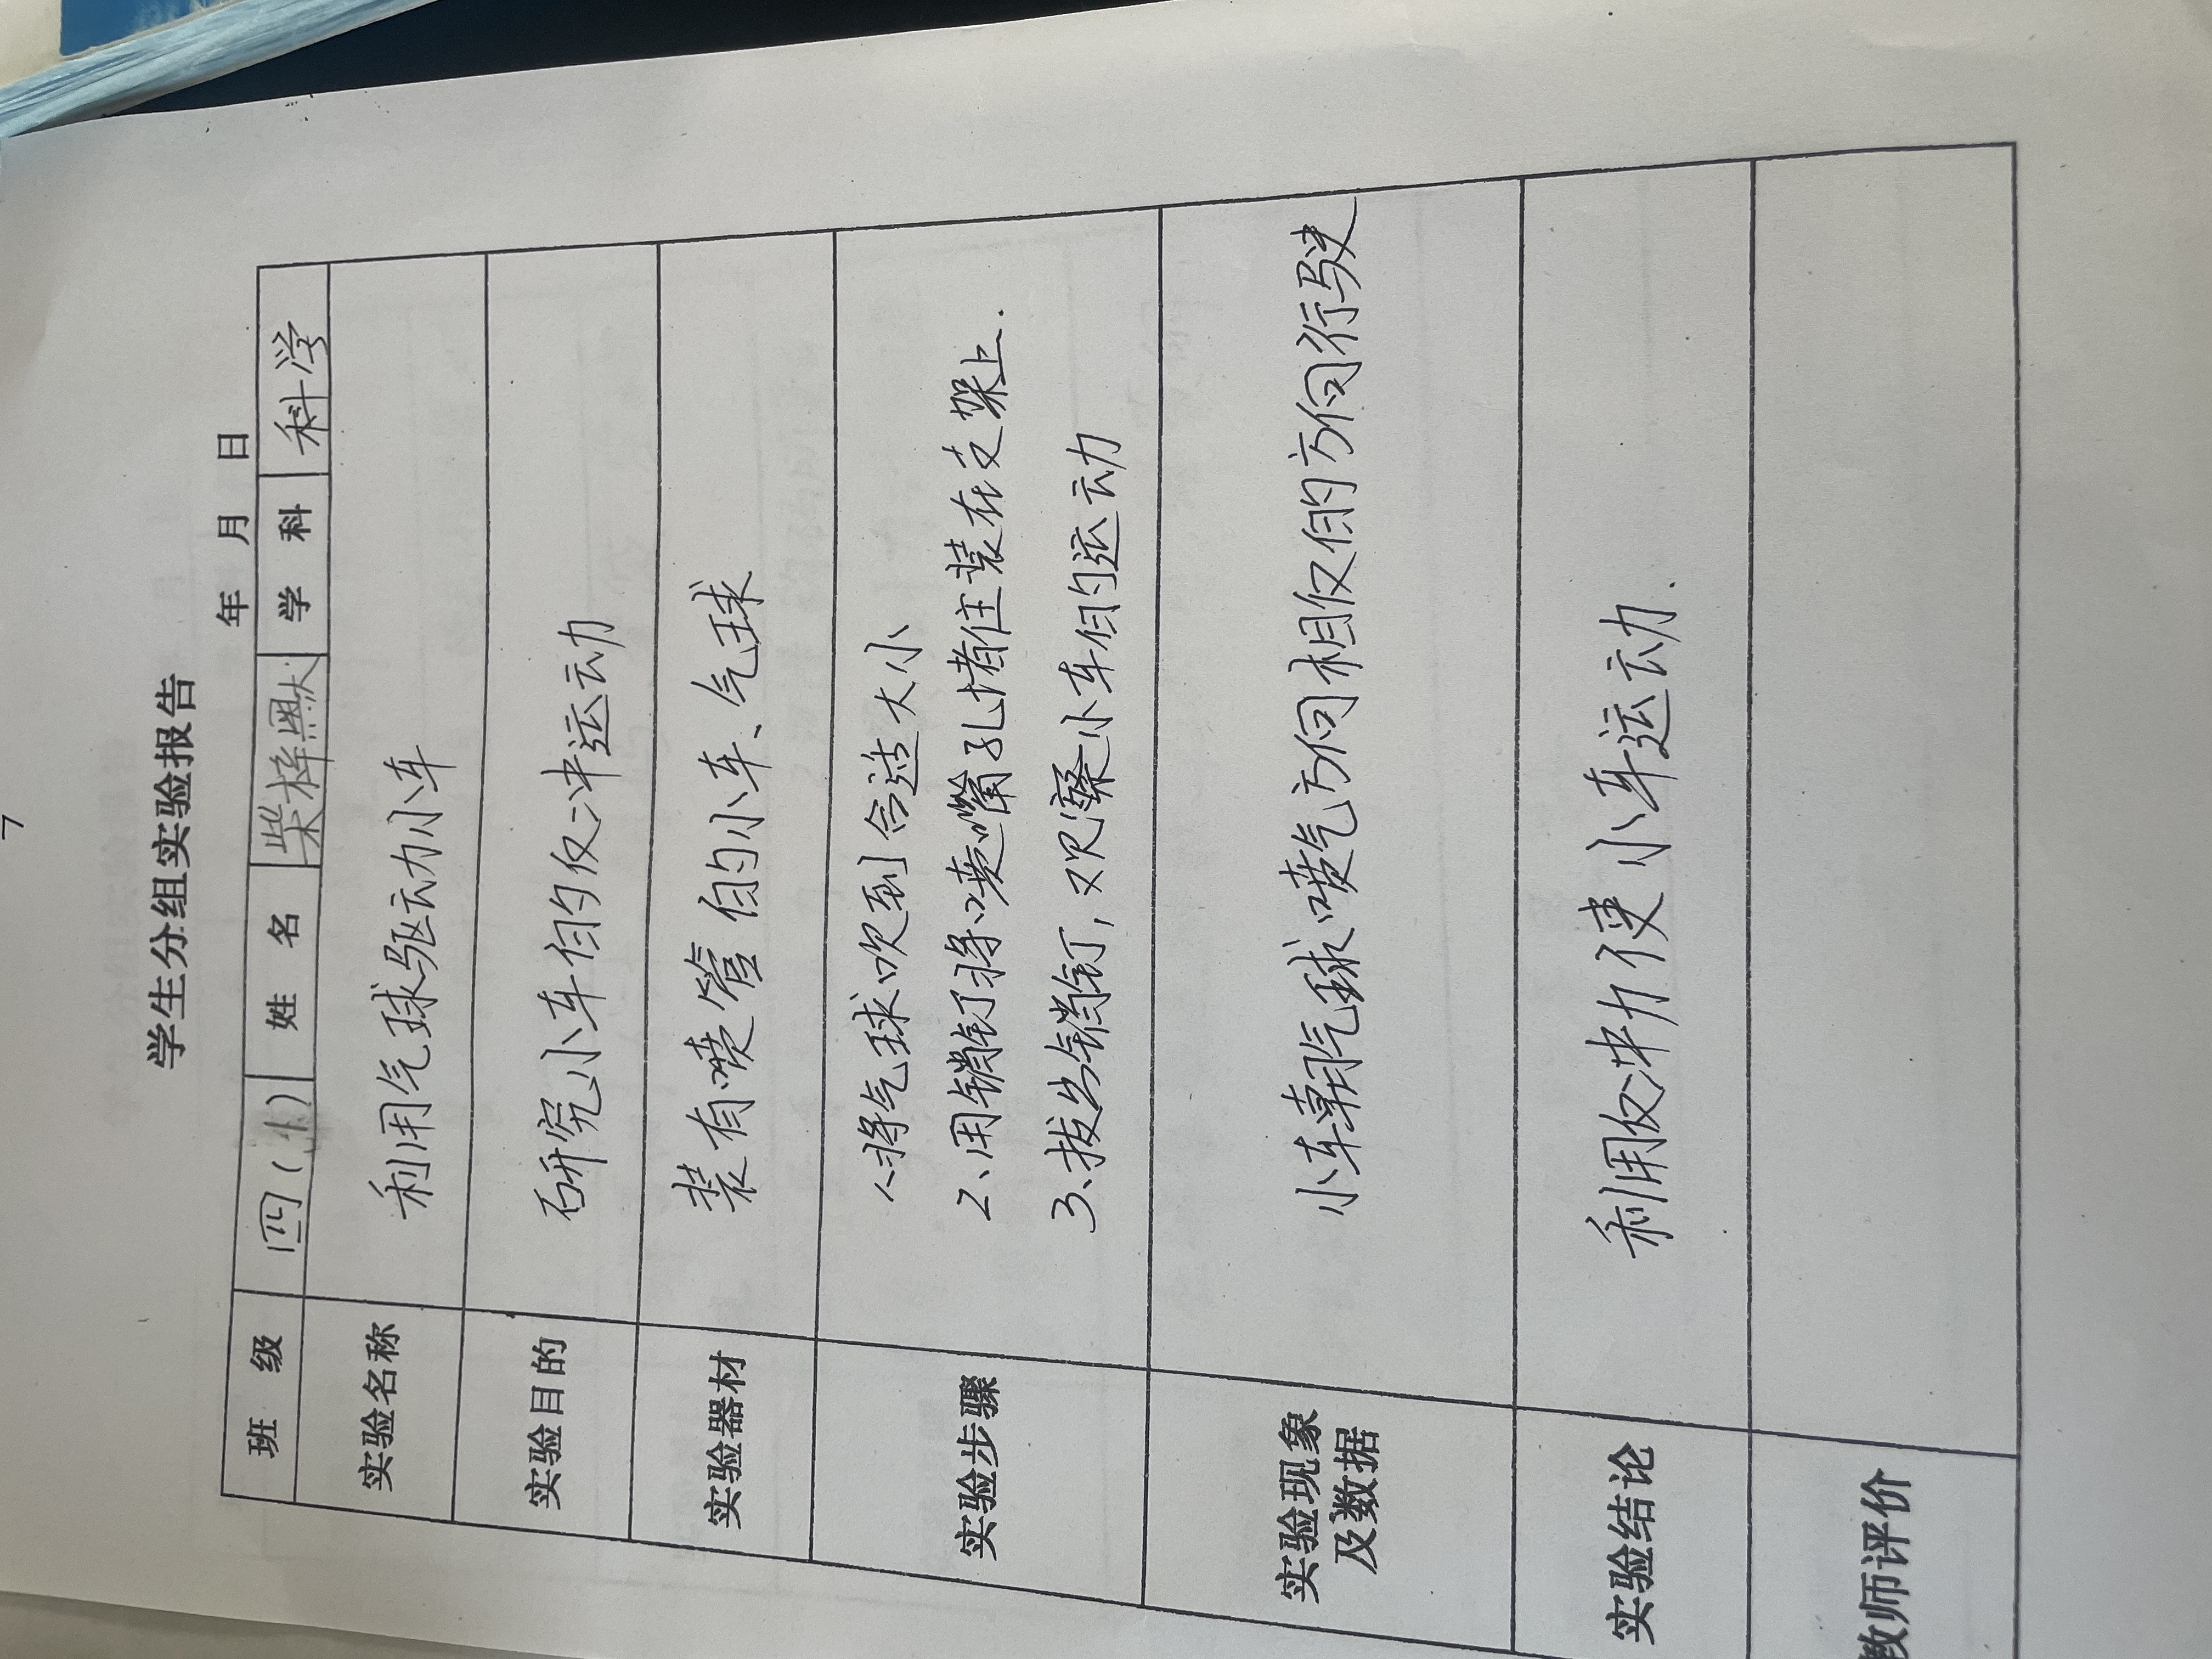 学生分组实验报告
年 月 日
班 级 四( ) 姓 名 柴梓默 学 科 科学
实验名称 利用气球驱动小车
实验目的 研究小车的反冲运动
实验器材 装有喷管的小车、气球
实验步骤 1、将气球吹到合适大小
2、用销钉将喷嘴孔堵住装在支架上.
3、拔出销钉,观察小车的运动
实验现象 小车朝气球喷气方向相反的方向行驶
及数据
实验结论 利用反冲力使小车运动.
教师评价